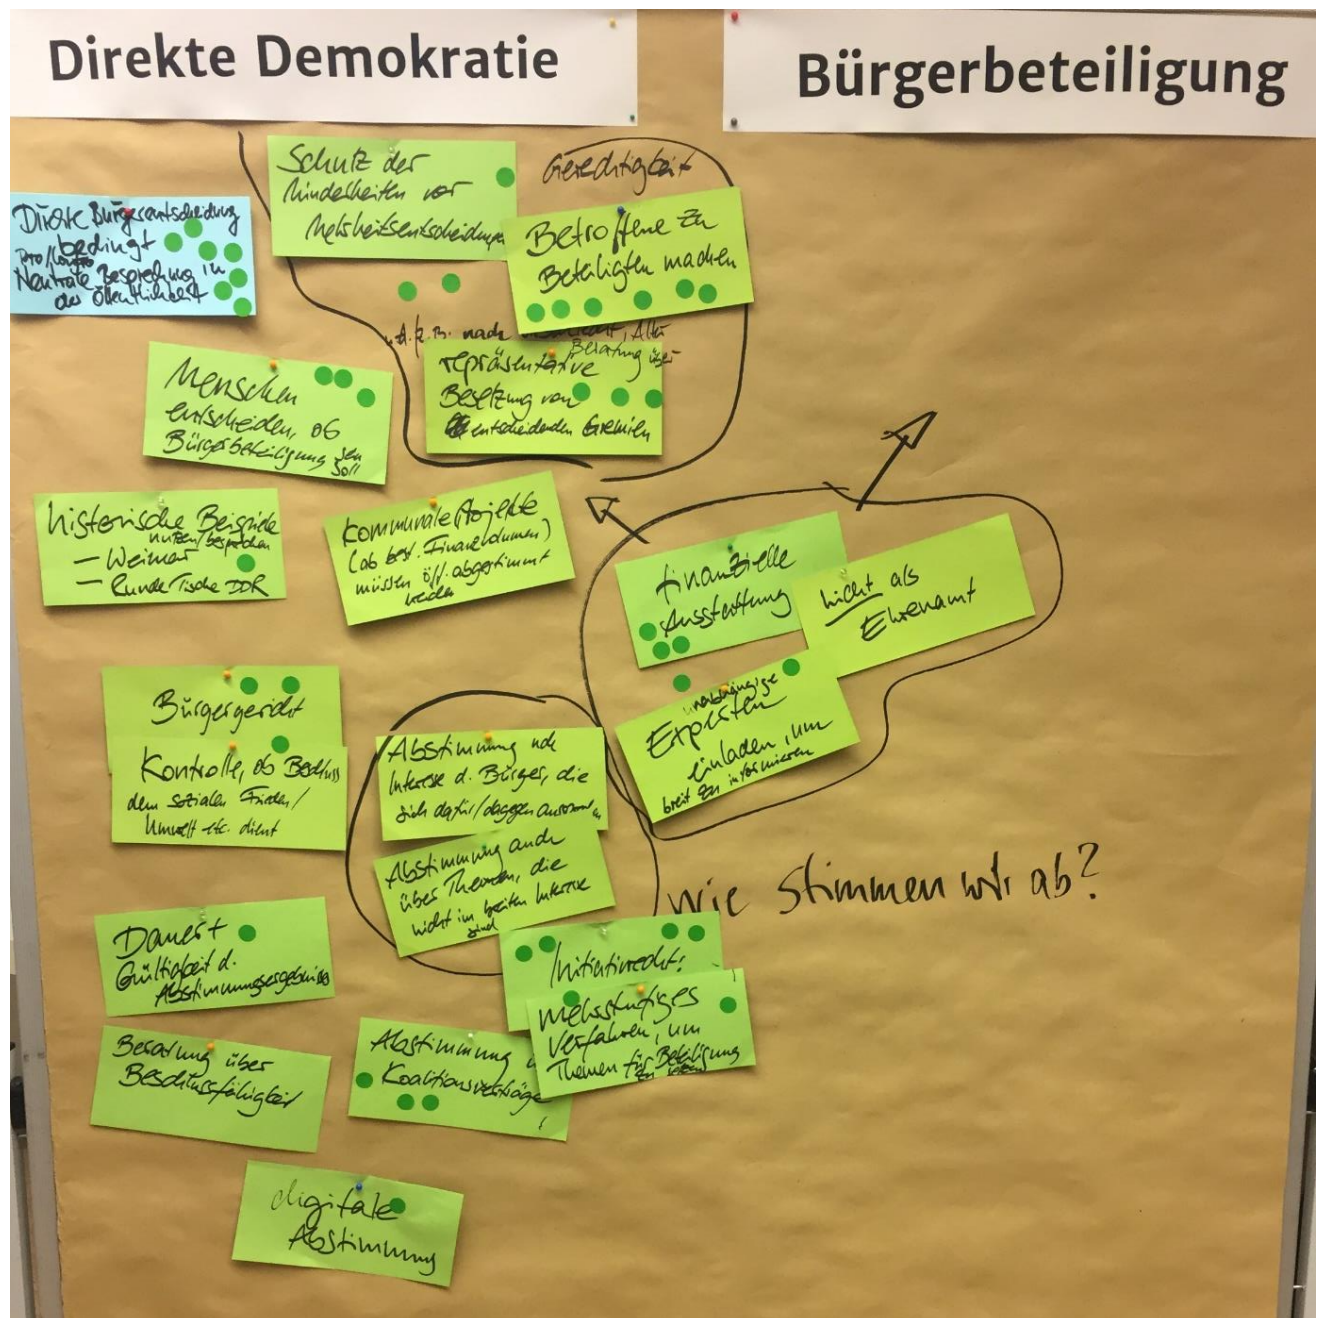 Direkte Demokratie
Bürgerbeteiligung
Schutz der
Minderheiten vor
Mehrheitsentscheidungen
Gerechtigkeit
Betroffene zu
Beteiligten machen
Direkte Bürgerentscheidung
bedingt
pro/contra
Neutrale Besprechung in
der Öffentlichkeit
z.B. nach
, Alter
Beratung über
repräsentative
Besetzung von
entscheidenden Gremien
Menschen
entscheiden, ob
Bürgerbeteiligung sein
soll
historische Beispiele
nutzen/besprechen
– Weimar
– Runde Tische DDR
Kommunale Projekte
(ab best. Finanzvolumen)
müssen öff. abgestimmt
werden
finanzielle
Ausstattung
nicht als
Ehrenamt
unabhängige
Experten
einladen, um
breit zu informieren
Bürgergericht
Kontrolle, ob Beschluss
dem sozialen Frieden/
Umwelt etc. dient
Abstimmung nach
Interesse d. Bürger, die
sich dafür/dagegen
Abstimmung auch
über Themen, die
nicht im breiten Interesse
sind
Wie stimmen wir ab?
Dauer +
Gültigkeit d.
Abstimmungsergebnisses
Initiativrecht:
mehrstufiges
Verfahren, um
Themen für Beteiligung
zu
Beratung über
Beschlussfähigkeit
Abstimmung
Koalitionsverträge
digitale
Abstimmung